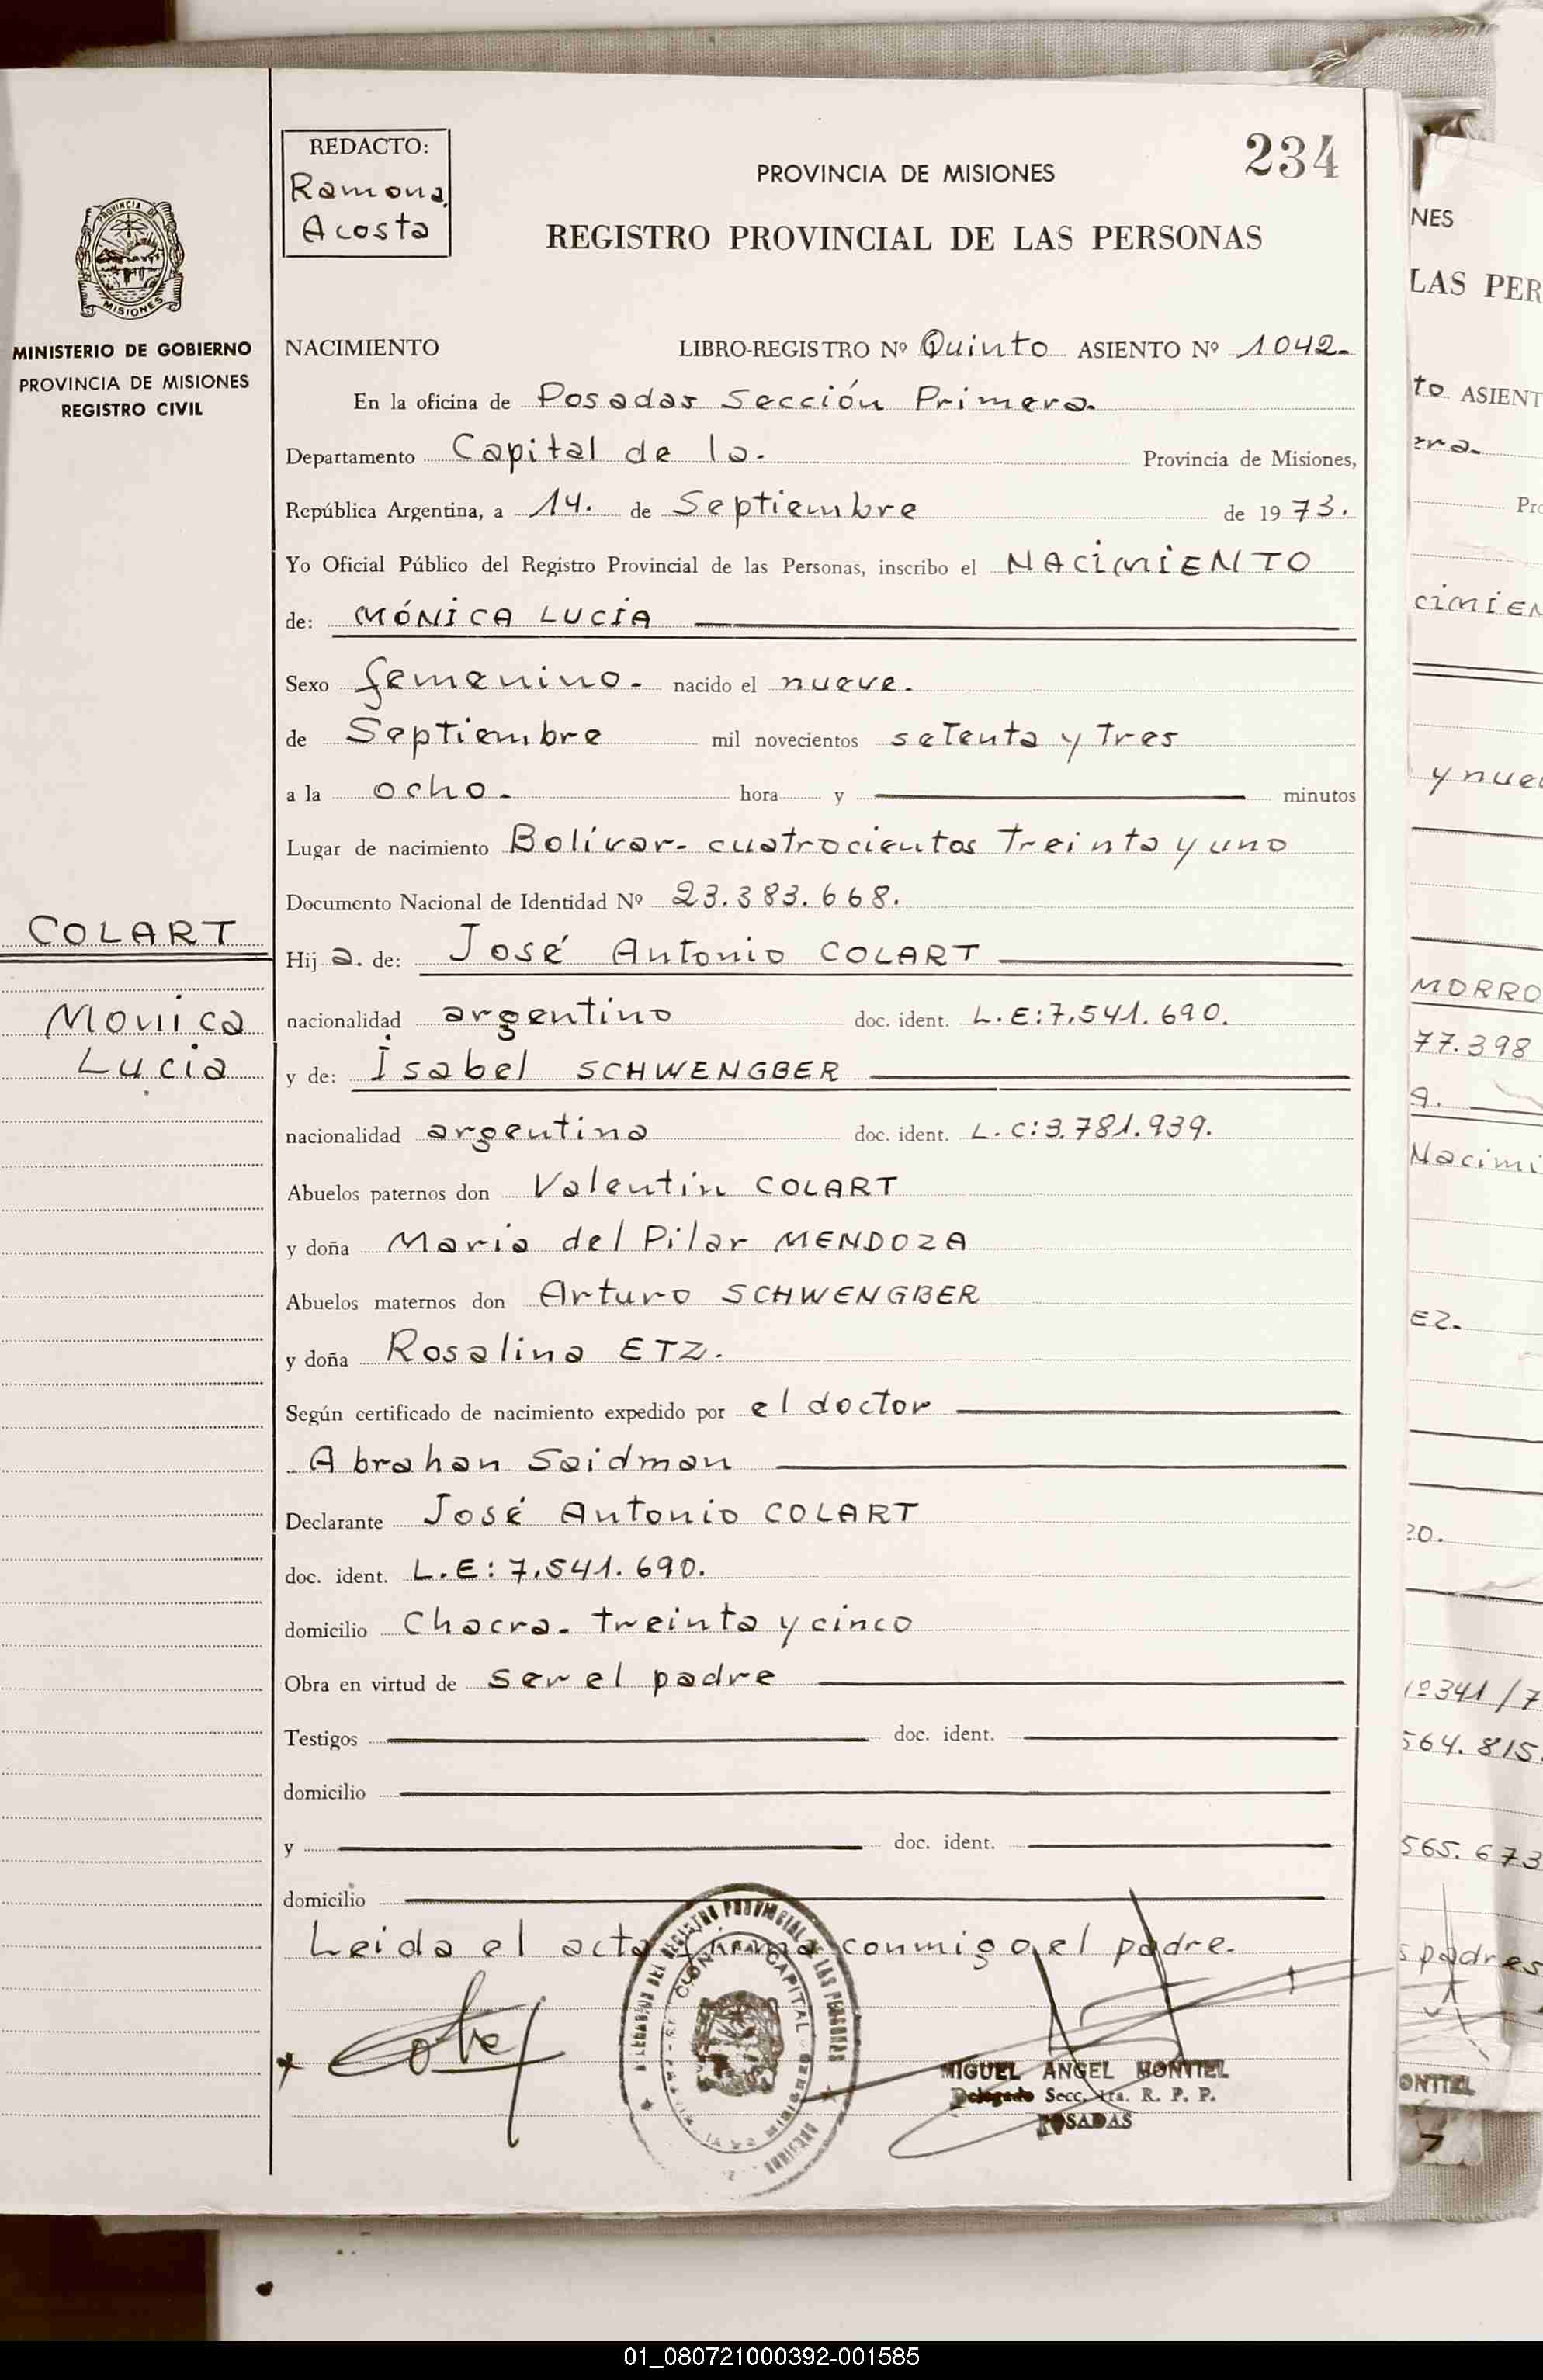 REDACTO:
Ramona
Acosta
234
PROVINCIA DE MISIONES
REGISTRO PROVINCIAL DE LAS PERSONAS
PROVINCIA DE
MISIONES
MINISTERIO DE GOBIERNO
PROVINCIA DE MISIONES
REGISTRO CIVIL
NACIMIENTO LIBRO-REGISTRO Nº Quinto ASIENTO Nº 1042.
En la oficina de Posadas Sección Primera.
Departamento Capital de la. Provincia de Misiones,
República Argentina, a 14. de Septiembre de 1973.
Yo Oficial Público del Registro Provincial de las Personas, inscribo el NACIMIENTO
de: MÓNICA LUCÍA
Sexo femenino. nacido el nueve.
de Septiembre mil novecientos setenta y tres
a la ocho. hora y minutos
Lugar de nacimiento Bolívar- cuatrocientos treinta y uno
Documento Nacional de Identidad Nº 23.383.668.
COLART
Hija. de: José Antonio COLART
Monica
nacionalidad argentino doc. ident. L.E:7.541.690.
Lucia
y de: Isabel SCHWENGBER
nacionalidad argentina doc. ident. L.C:3.781.939.
Abuelos paternos don Valentin COLART
y doña Maria del Pilar MENDOZA
Abuelos maternos don Arturo SCHWENGBER
y doña Rosalina ETZ.
Según certificado de nacimiento expedido por el doctor
Abrahan Saidman
Declarante José Antonio COLART
doc. ident. L.E: 7.541.690.
domicilio Chacra. treinta y cinco
Obra en virtud de ser el padre
Testigos doc. ident.
domicilio
y doc. ident.
domicilio
Leida el acta firma conmigo el padre.
MIGUEL ANGEL MONTIEL
Delegado Secc. 1ra. R. P. P.
POSADAS
NES
LAS PER
to ASIENT
era.
Pro
cimien
y nue
MORRO
77.398
a.
Nacimi
EZ.
20.
nº341/7
564.815.
565.673
s padres
ONTIEL
01_080721000392-001585